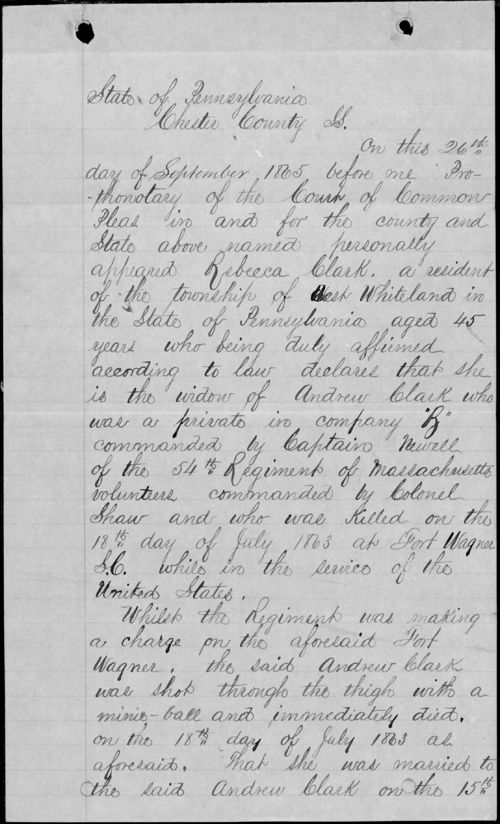 State of Pennsylvania
Chester County SS.
On this 26th
day of September 1865 before me Pro-
-thonotary of the Court of Common
Pleas in and for the county and
State above named personally
appeared Rebecca Clark. a resident
of the township of West Whiteland in
the State of Pennsylvania aged 45
years who being duly affirmed
according to law declares that she
is the widow of Andrew Clark who
was a private in company "B"
commanded by Captain Newell
of the 54th Regiment of Massachusetts
volunteers commanded by Colonel
Shaw and who was Killed on the
18th day of July 1863 at Fort Wagner
S.C. while in the service of the
United States.
Whilst the Regiment was making
a charge on the aforesaid Fort
Wagner. the said Andrew Clark
was shot through the thigh with a
minie-ball and immediately died.
on the 18th day of July 1863 as
aforesaid. That she was married to
the said Andrew Clark on the 15th